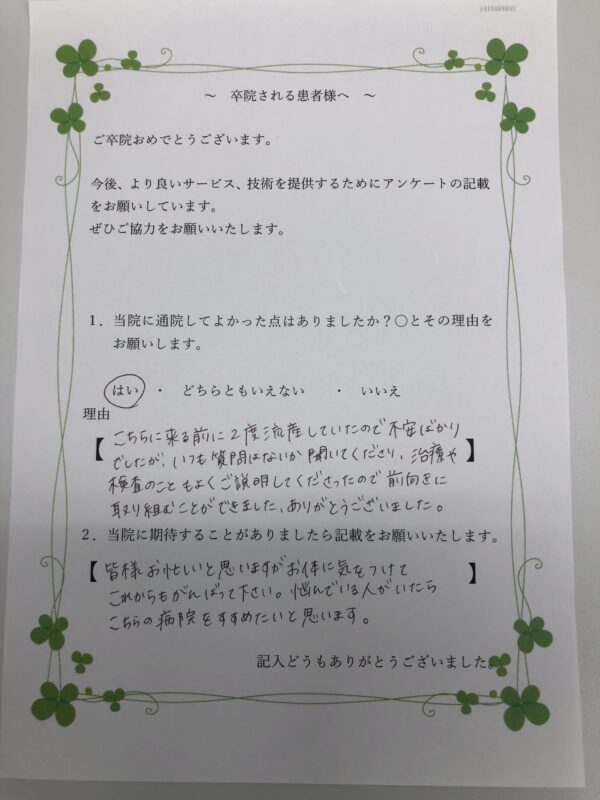 ～　卒院される患者様へ　～
ご卒院おめでとうございます。
今後、より良いサービス、技術を提供するためにアンケートの記載
をお願いしています。
ぜひご協力をお願いいたします。
1．当院に通院してよかった点はありましたか？〇とその理由を
お願いします。
はい　・　どちらともいえない　・　いいえ
理由
【こちらに来る前に2度流産していたので不安ばかり
でしたが、いつも質問はないか聞いてくださり、治療や
検査のこともよくご説明してくださったので前向きに
取り組むことができました。ありがとうございました。】
2．当院に期待することがありましたら記載をお願いいたします。
【皆様お忙しいと思いますがお体に気をつけて
これからもがんばって下さい。悩んでいる人がいたら
こちらの病院をすすめたいと思います。】
記入どうもありがとうございました。